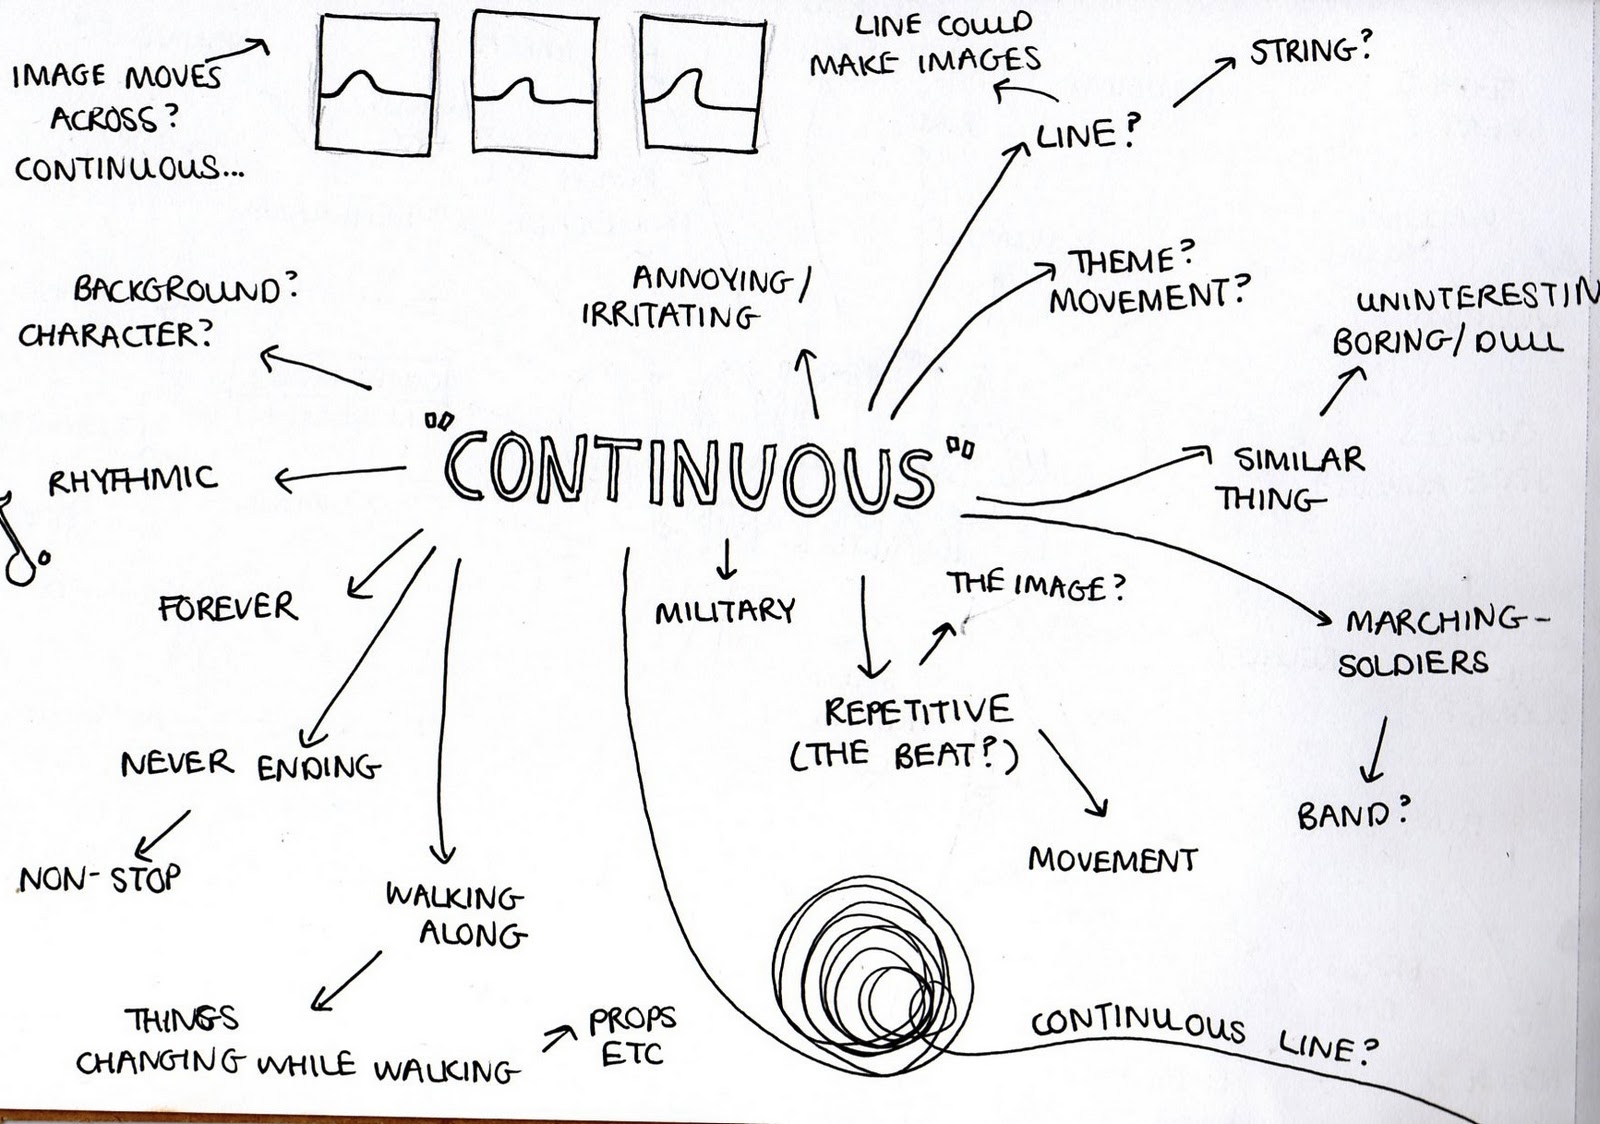 IMAGE MOVES
ACROSS?
CONTINUOUS...
LINE COULD
MAKE IMAGES
STRING?
LINE?
BACKGROUND?
CHARACTER?
ANNOYING/
IRRITATING
THEME?
MOVEMENT?
UNINTERESTIN
BORING/DULL
"CONTINUOUS"
RHYTHMIC
SIMILAR
THING
FOREVER
MILITARY
THE IMAGE?
MARCHING-
SOLDIERS
REPETITIVE
(THE BEAT?)
NEVER ENDING
BAND?
NON-STOP
MOVEMENT
WALKING
ALONG
THINGS
CHANGING WHILE WALKING
PROPS
ETC
CONTINUOUS LINE?